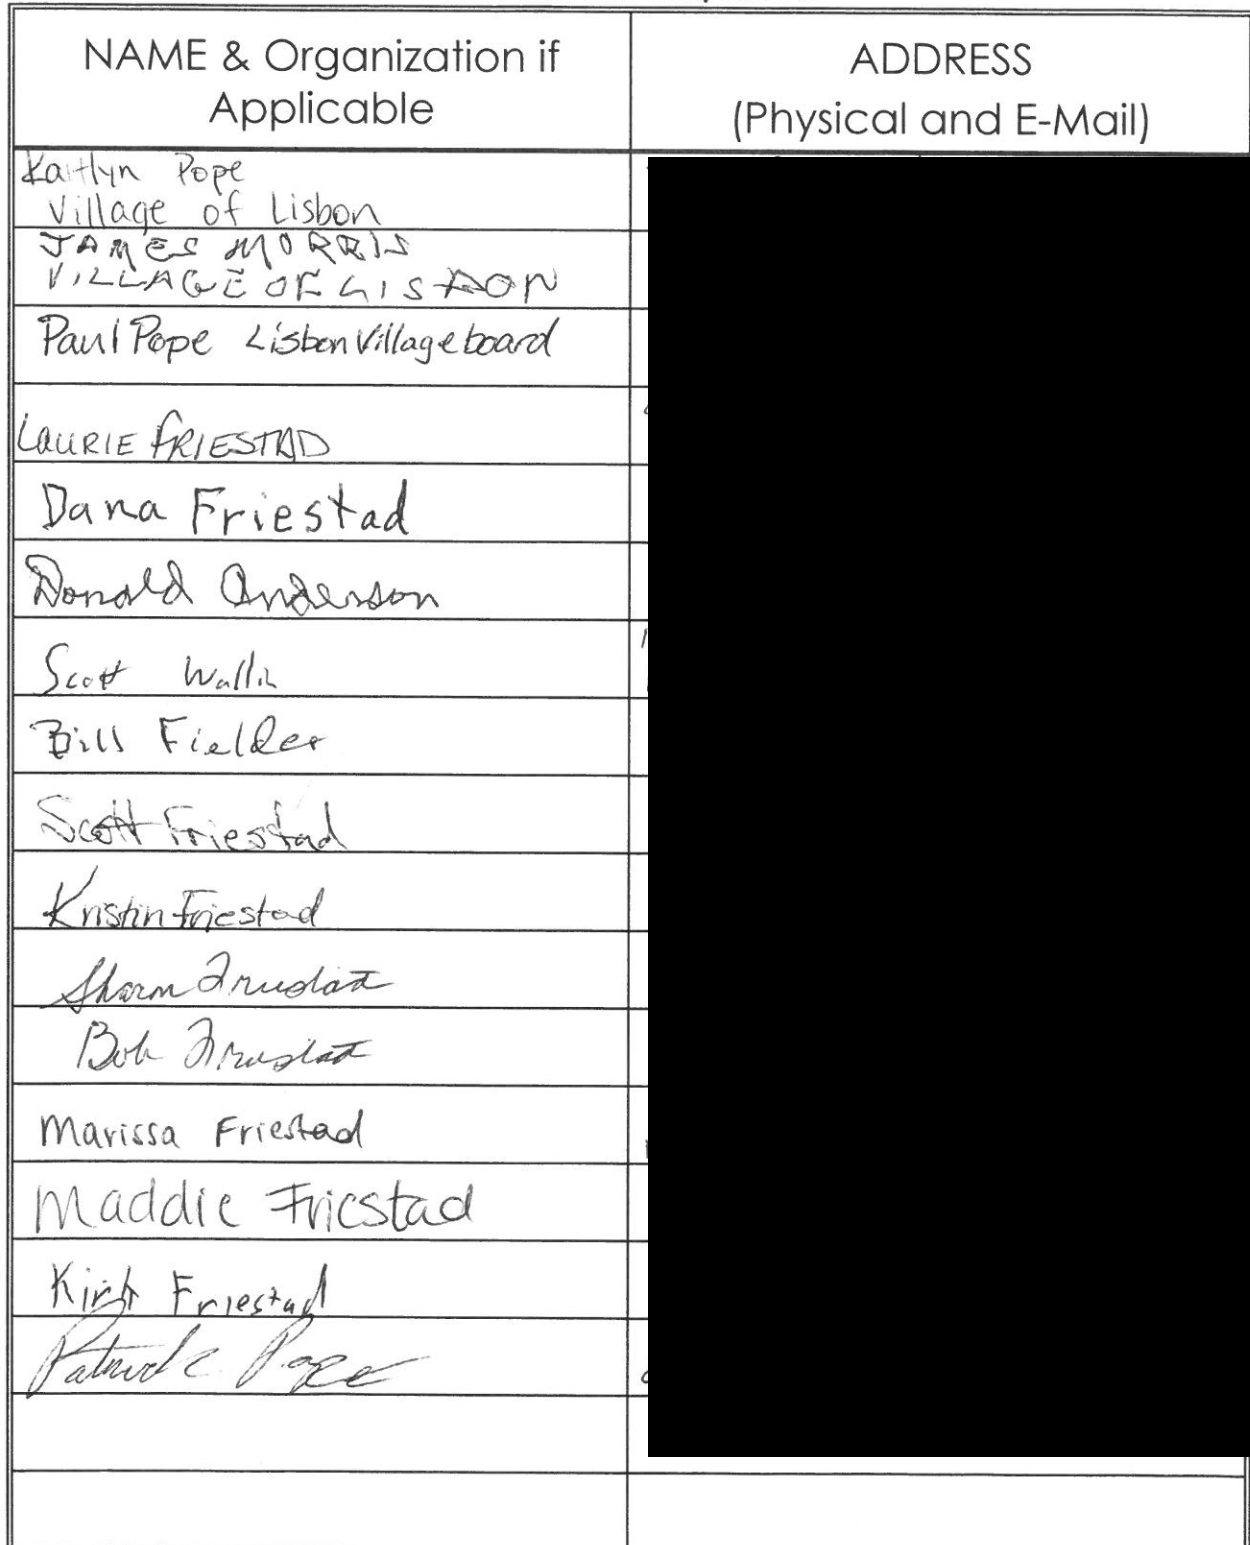 NAME & Organization if
Applicable
ADDRESS
(Physical and E-Mail)
Kaitlyn Pope
Village of Lisbon
JAMES MORRIS
VILLAGE OF LISBON
Paul Pope Lisbon Village board
LAURIE FRIESTAD
Dana Friestad
Donald Anderson
Scott Wallin
Bill Fielder
Scott Friestad
Kristin Friestad
Sharon Friestad
Bob Friestad
Marissa Friestad
Maddie Friestad
Kirk Friestad
Patrick Pope